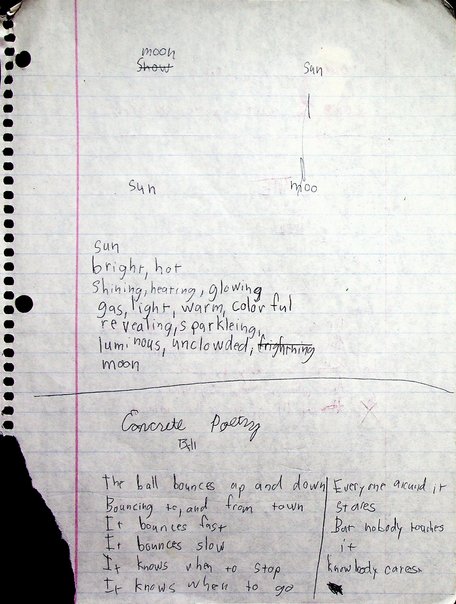 moon
Show
Sun
sun
moo
sun
bright, hot
Shining, heating, glowing
gas, light, warm, colorful
revealing, sparkleing,
luminous, unclowded, frightning
moon
Concrete Poetry
Ball
The ball bounces up and down
Bouncing to, and from town
It bounces fast
It bounces slow
It knows when to stop
It knows when to go
Everyone around it
stares
But nobody touches
it
knowbody cares.